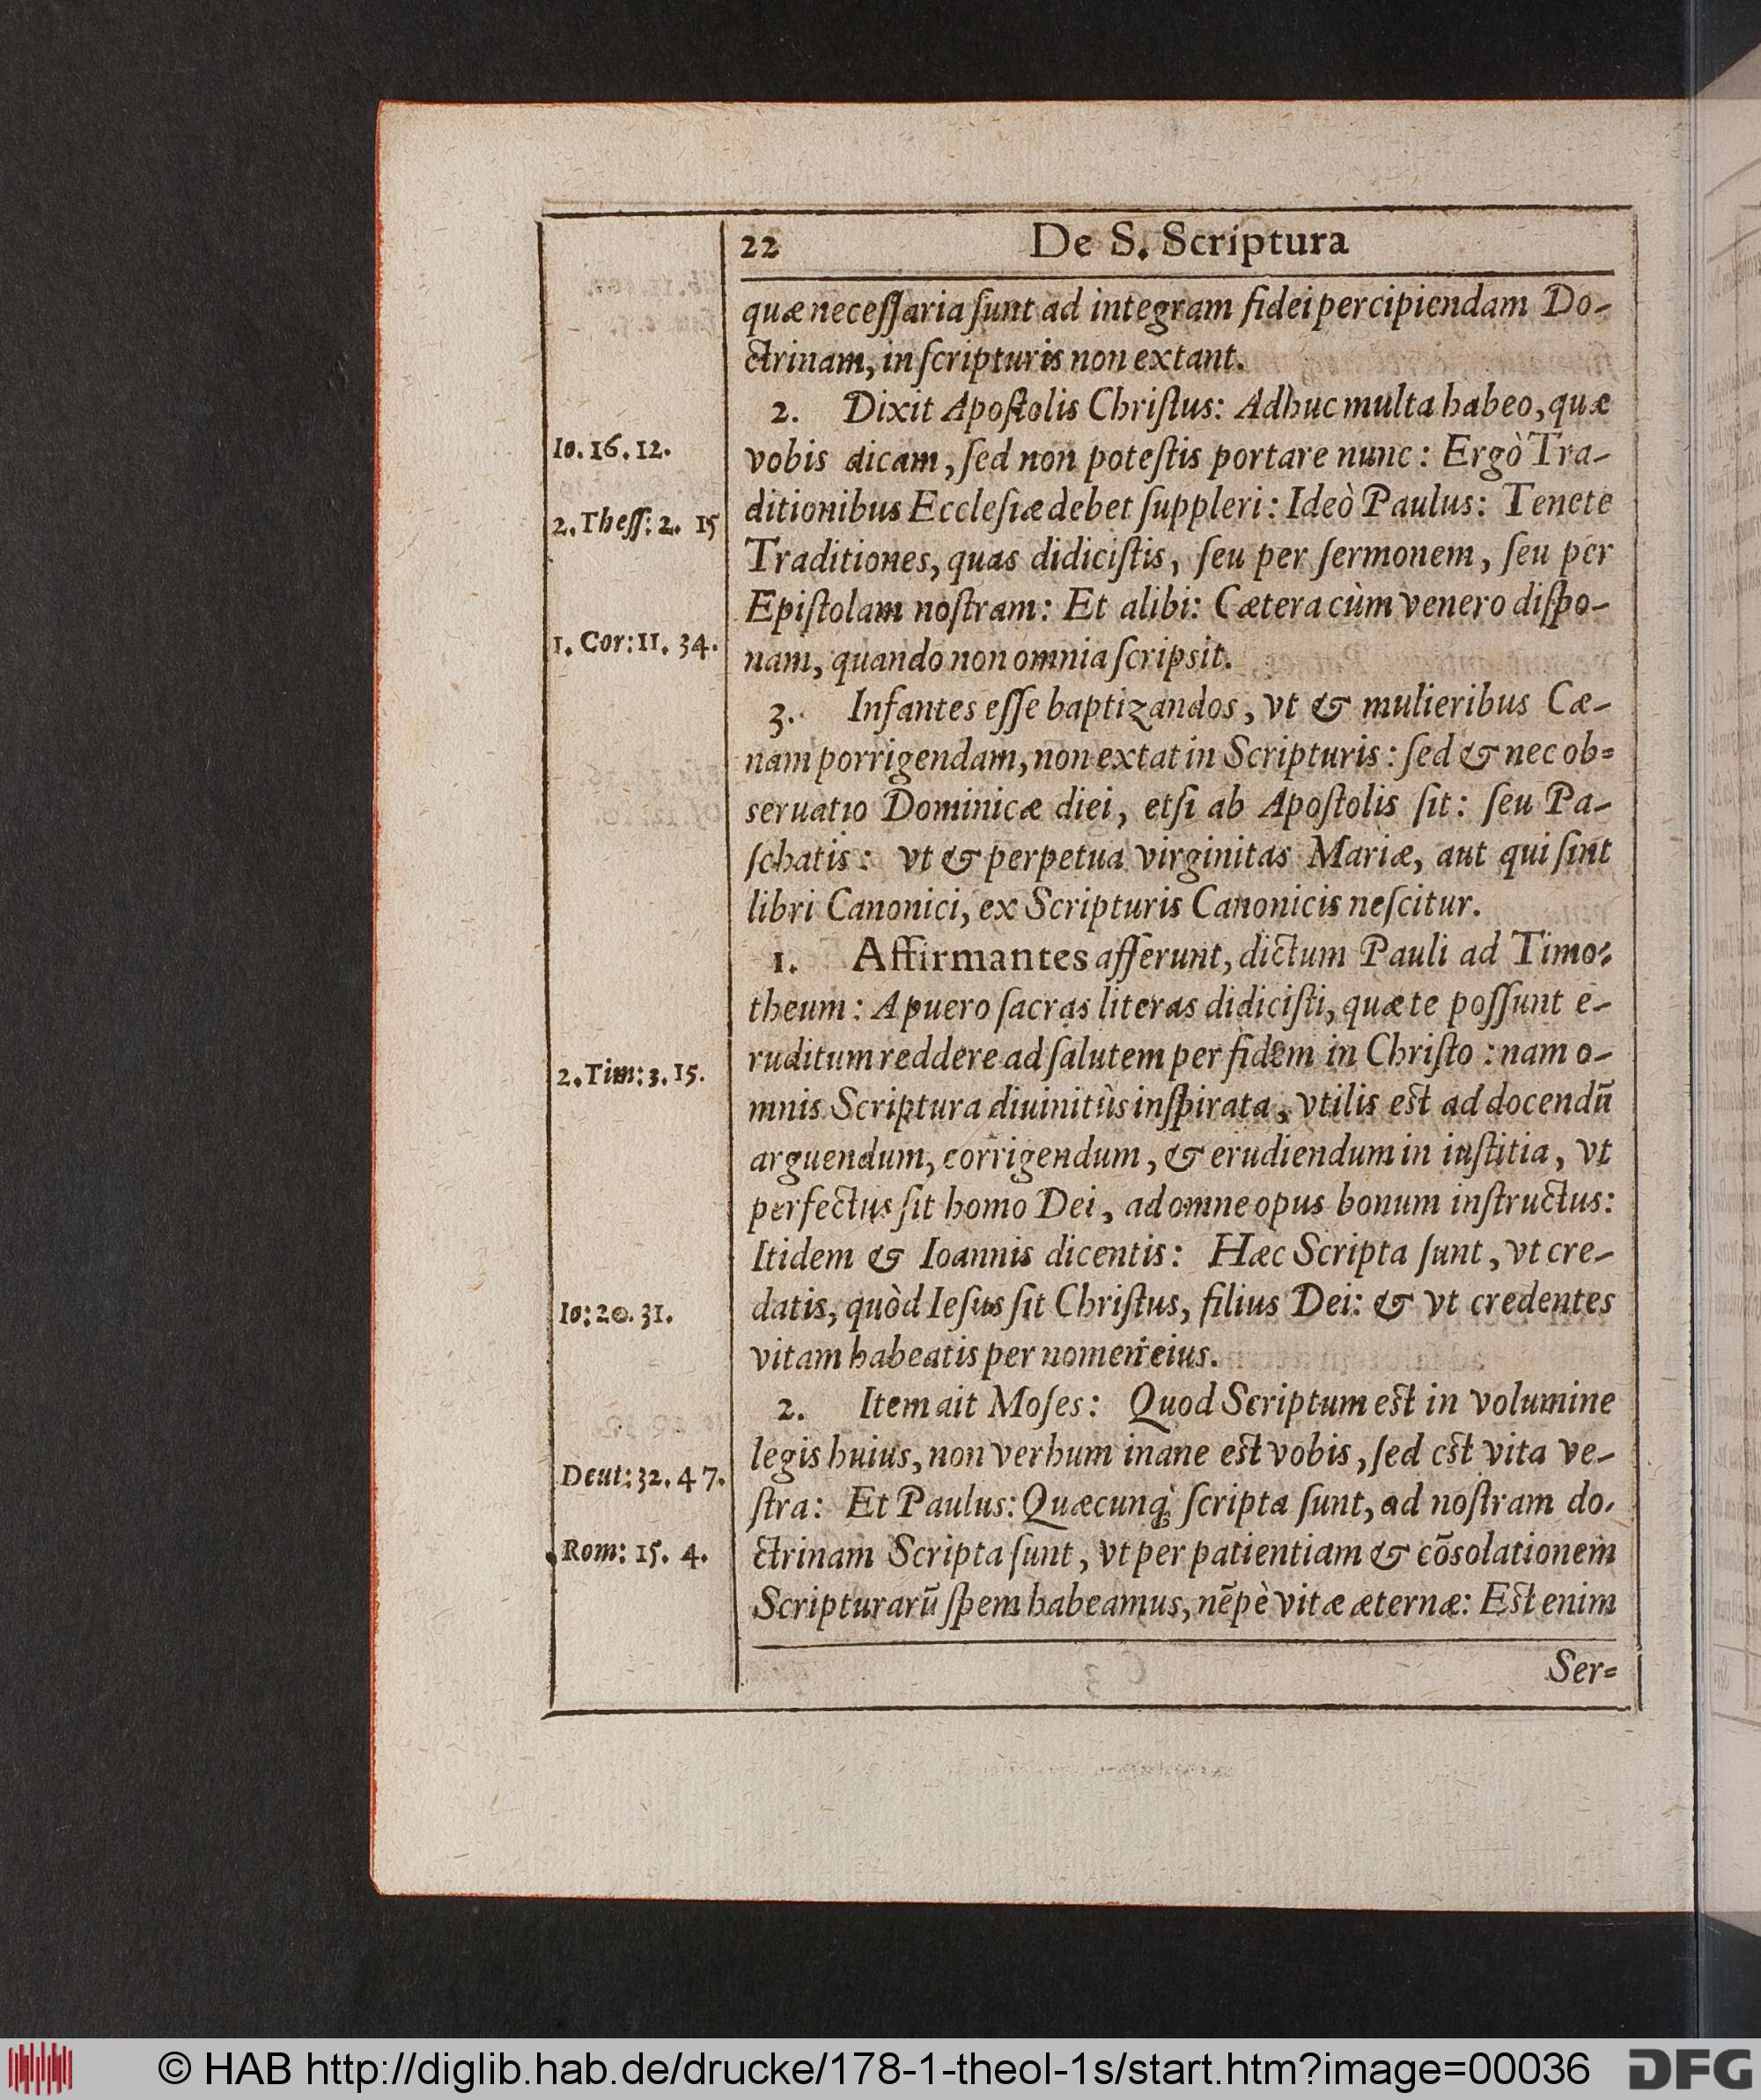 22 De S. Scriptura
quæ neceſſaria ſunt ad integram fidei percipiendam Do-
ctrinam, in ſcripturis non extant.
2. Dixit Apoſtolis Chriſtus: Adhuc multa habeo, quæ
Io. 16. 12.
vobis dicam, ſed non poteſtis portare nunc: Ergò Tra-
ditionibus Eccleſiæ debet ſuppleri: Ideò Paulus: Tenete
2. Theſſ: 2. 15
Traditiones, quas didiciſtis, ſeu per ſermonem, ſeu per
Epiſtolam noſtram: Et alibi: Cætera cùm venero diſpo-
1. Cor: 11. 34.
nam, quando non omnia ſcripsit.
3. Infantes eſſe baptizandos, vt & mulieribus Cæ-
nam porrigendam, non extat in Scripturis: ſed & nec ob=
seruatio Dominicæ diei, etſi ab Apoſtolis ſit: ſeu Pa-
ſchatis: vt & perpetua virginitas Mariæ, aut qui ſint
libri Canonici, ex Scripturis Canonicis neſcitur.
1. Affirmantes afferunt, dictum Pauli ad Timo=
theum: A puero ſacras literas didiciſti, quæ te poſſunt e-
ruditum reddere ad ſalutem per fidem in Chriſto: nam o-
2. Tim: 3. 15.
mnis Scriptura diuinitùs inſpirata, vtilis est ad docendũ
arguendum, corrigendum, & erudiendum in iuſtitia, vt
perfectus ſit homo Dei, ad omne opus bonum inſtructus:
Itidem & Ioannis dicentis: Hæc Scripta ſunt, vt cre-
datis, quòd Ieſus ſit Chriſtus, filius Dei: & vt credentes
Io: 20. 31.
vitam habeatis per nomen eius.
2. Item ait Moſes: Quod Scriptum est in volumine
legis huius, non verbum inane est vobis, ſed est vita ve-
Deut: 32. 47.
ſtra: Et Paulus: Quæcunq; ſcripta ſunt, ad noſtram do-
ctrinam Scripta ſunt, vt per patientiam & cõsolationem
Rom: 15. 4.
Scripturarũ ſpem habeamus, nẽpè vitæ æternæ: Est enim
Ser=
© HAB http://diglib.hab.de/drucke/178-1-theol-1s/start.htm?image=00036
DFG